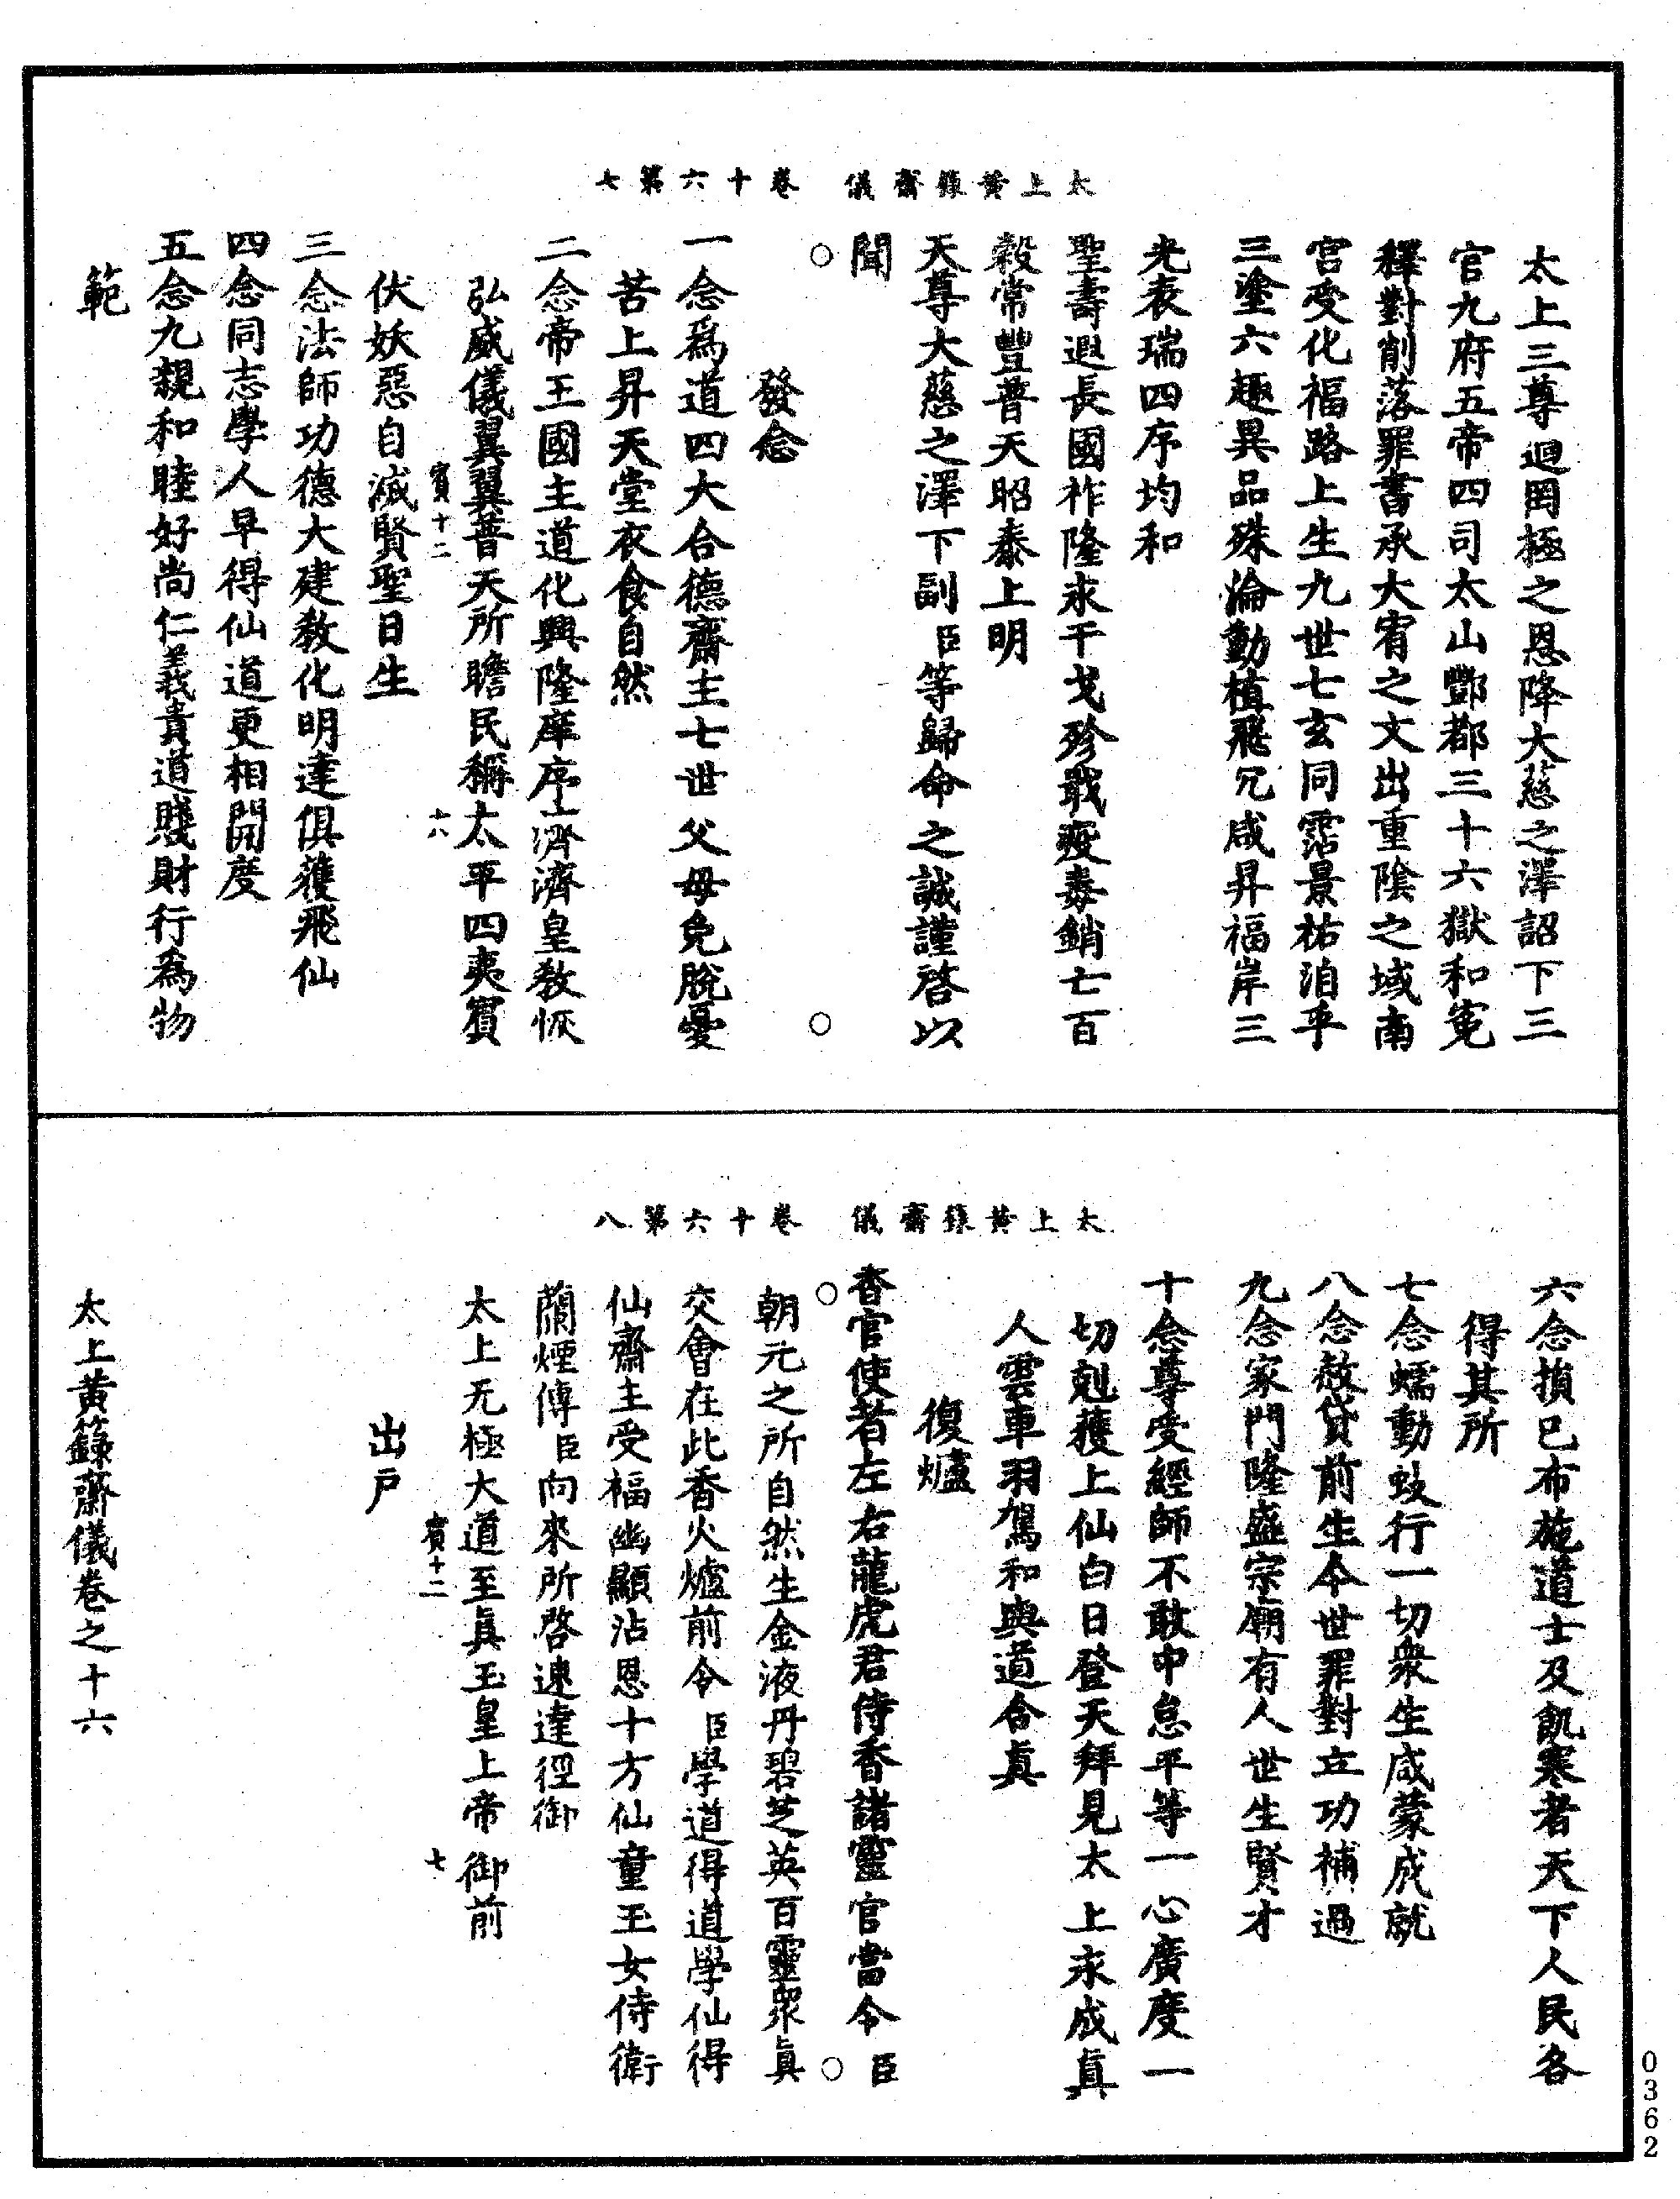 太上黃籙齋儀　卷十六第七
太上三尊迴罔極之恩降大慈之澤詔下三
官九府五帝四司太山酆都三十六獄和寃
釋對削落罪書承大宥之文出重陰之域南
宮受化福路上生九世七玄同霑景祐洎乎
三塗六趣異品殊淪動植飛沉咸昇福岸三
光表瑞四序均和
聖壽遐長國祚隆永干戈殄戢疫毒銷七百
穀常豐普天昭泰上明
天尊大慈之澤下副臣等歸命之誠謹啓以
聞
發念
一念爲道四大合德齋主七世父母免脫憂
苦上昇天堂衣食自然
二念帝王國主道化興隆庠序濟濟皇教恢
弘威儀翼翼普天所瞻民稱太平四夷賓
賓十二　十六
伏妖惡自滅賢聖日生
三念法師功德大建教化明達俱獲飛仙
四念同志學人早得仙道更相開度
五念九親和睦好尚仁義貴道賤財行爲物
範
太上黃籙齋儀　卷十六第八
六念損己布施道士及飢寒者天下人民各
得其所
七念蠕動蚑行一切衆生咸蒙成就
八念赦貸前生今世罪對立功補過
九念家門隆盛宗廟有人世生賢才
十念尊受經師不敢中怠平等一心廣度一
切剋獲上仙白日登天拜見太上永成眞
人雲車羽駕和與道合眞
復爐
香官使者左右龍虎君侍香諸靈官當令臣
朝元之所自然生金液丹碧芝英百靈衆眞
交會在此香火爐前令臣學道得道學仙得
仙齋主受福幽顯沾恩十方仙童玉女侍衛
蘭煙傳臣向來所啓速達徑御
太上无極大道至眞玉皇上帝御前
賓十二　七
出戶
太上黃籙齋儀卷之十六
0362